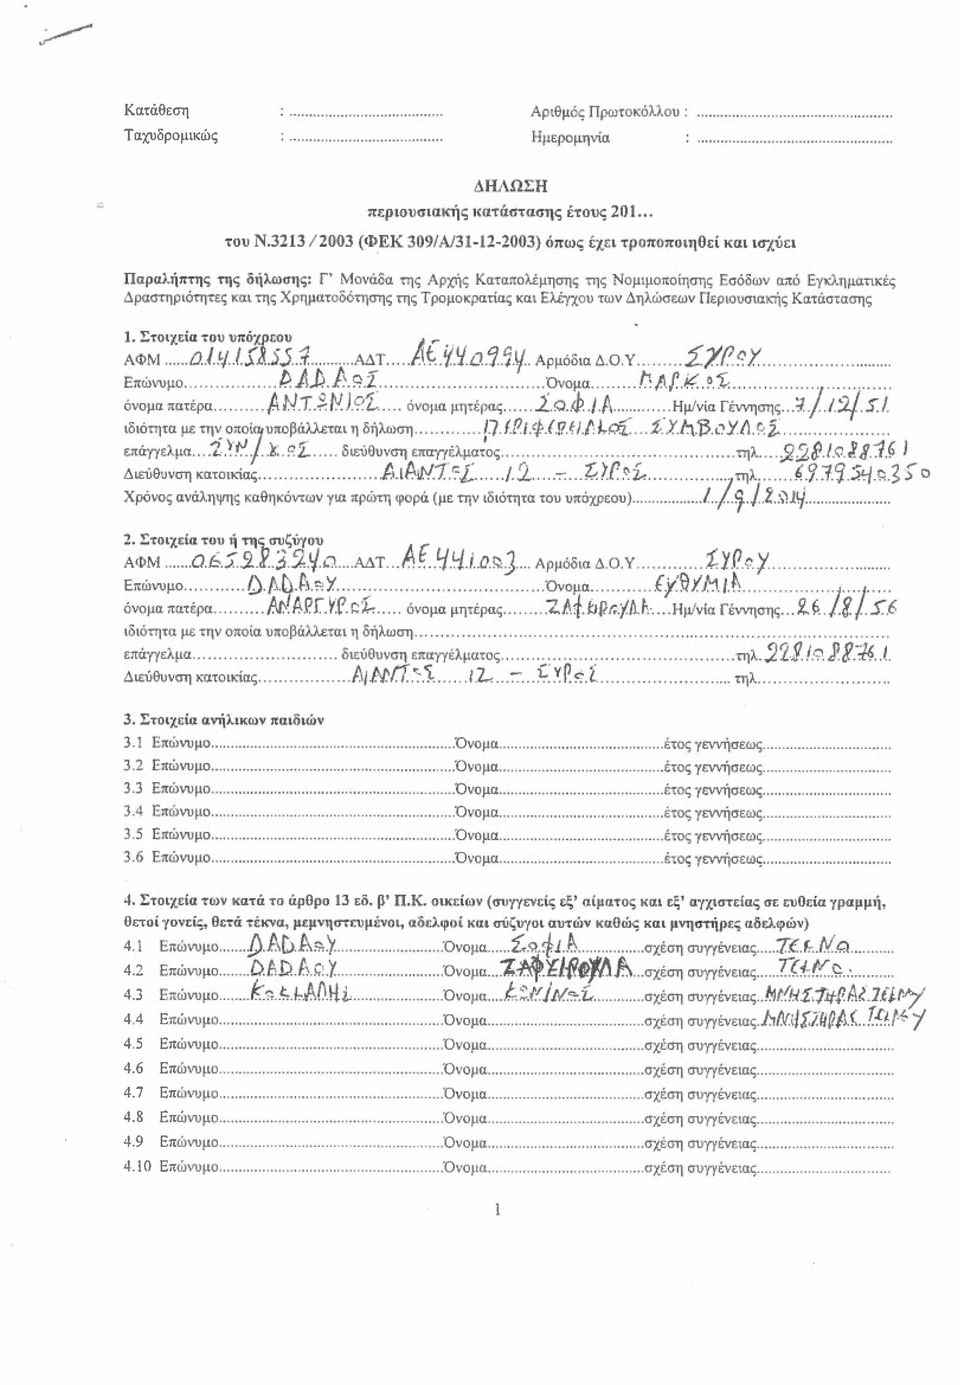 Κατάθεση : ........ Αριθμός Πρωτοκόλλου : ........
Ταχυδρομικώς : ........ Ημερομηνία : ........
ΔΗΛΩΣΗ
περιουσιακής κατάστασης έτους 201...
του Ν.3213 / 2003 (ΦΕΚ 309/Α/31-12-2003) όπως έχει τροποποιηθεί και ισχύει
Παραλήπτης της δήλωσης: Γ' Μονάδα της Αρχής Καταπολέμησης της Νομιμοποίησης Εσόδων από Εγκληματικές
Δραστηριότητες και της Χρηματοδότησης της Τρομοκρατίας και Ελέγχου των Δηλώσεων Περιουσιακής Κατάστασης
1. Στοιχεία του υπόχρεου
ΑΦΜ ........ ΑΔΤ ........ Αρμόδια Δ.Ο.Υ. ΣΥΡΟΥ
Επώνυμο ΔΑΔΑΟΣ Όνομα ΜΑΡΚΟΣ
όνομα πατέρα ΑΝΤΩΝΙΟΣ όνομα μητέρας ΣΟΦΙΑ Ημ/νία Γέννησης
ιδιότητα με την οποία υποβάλλεται η δήλωση ΣΥΜΒΟΥΛΟΣ
επάγγελμα ΣΥΝ/ΧΟΣ διεύθυνση επαγγέλματος ........ τηλ. 2281088761
Διεύθυνση κατοικίας ΑΙΑΝΤΟΣ 12 - ΣΥΡΟΣ τηλ. 6979540350
Χρόνος ανάληψης καθηκόντων για πρώτη φορά (με την ιδιότητα του υπόχρεου) 1/9/2014
2. Στοιχεία του ή της συζύγου
ΑΦΜ 065283240 ΑΔΤ ΑΕ441003 Αρμόδια Δ.Ο.Υ. ΣΥΡΟΥ
Επώνυμο ΔΑΔΑΟΥ Όνομα ΕΥΘΥΜΙΑ
όνομα πατέρα ΑΝΑΡΓΥΡΟΣ όνομα μητέρας ........ Ημ/νία Γέννησης 26/8/56
ιδιότητα με την οποία υποβάλλεται η δήλωση ........
επάγγελμα ........ διεύθυνση επαγγέλματος ........ τηλ. 2281088761
Διεύθυνση κατοικίας ΑΙΑΝΤΟΣ 12 - ΣΥΡΟΣ τηλ. ........
3. Στοιχεία ανήλικων παιδιών
3.1 Επώνυμο ........ Όνομα ........ έτος γεννήσεως ........
3.2 Επώνυμο ........ Όνομα ........ έτος γεννήσεως ........
3.3 Επώνυμο ........ Όνομα ........ έτος γεννήσεως ........
3.4 Επώνυμο ........ Όνομα ........ έτος γεννήσεως ........
3.5 Επώνυμο ........ Όνομα ........ έτος γεννήσεως ........
3.6 Επώνυμο ........ Όνομα ........ έτος γεννήσεως ........
4. Στοιχεία των κατά το άρθρο 13 εδ. β' Π.Κ. οικείων (συγγενείς εξ' αίματος και εξ' αγχιστείας σε ευθεία γραμμή,
θετοί γονείς, θετά τέκνα, μεμνηστευμένοι, αδελφοί και σύζυγοι αυτών καθώς και μνηστήρες αδελφών)
4.1 Επώνυμο ΔΑΔΑΟΥ Όνομα ΣΟΦΙΑ σχέση συγγένειας ΤΕΚΝΟ
4.2 Επώνυμο ΔΑΔΑΟΥ Όνομα ΖΑΦΕΙΡΟΥΛΑ σχέση συγγένειας ΤΕΚΝΟ
4.3 Επώνυμο ........ Όνομα ........ σχέση συγγένειας ΜΝΗΣΤΗΡΑΣ ΤΕΚΝΟΥ
4.4 Επώνυμο ........ Όνομα ........ σχέση συγγένειας ΜΝΗΣΤΗΡΑΣ ΤΕΚΝΟΥ
4.5 Επώνυμο ........ Όνομα ........ σχέση συγγένειας ........
4.6 Επώνυμο ........ Όνομα ........ σχέση συγγένειας ........
4.7 Επώνυμο ........ Όνομα ........ σχέση συγγένειας ........
4.8 Επώνυμο ........ Όνομα ........ σχέση συγγένειας ........
4.9 Επώνυμο ........ Όνομα ........ σχέση συγγένειας ........
4.10 Επώνυμο ........ Όνομα ........ σχέση συγγένειας ........
1